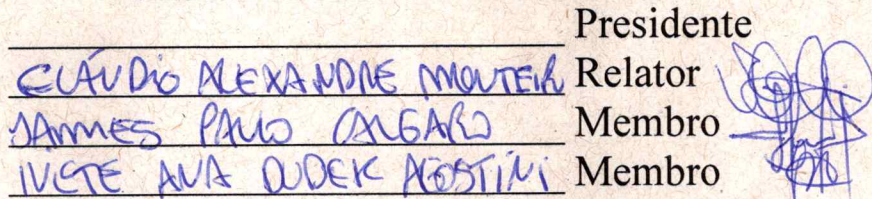 Presidente
CLÁUDIO ALEXANDRE MONTEIR Relator
JAMMES PAULO CALGARO Membro
IVETE ANA DUDEK AGOSTINI Membro